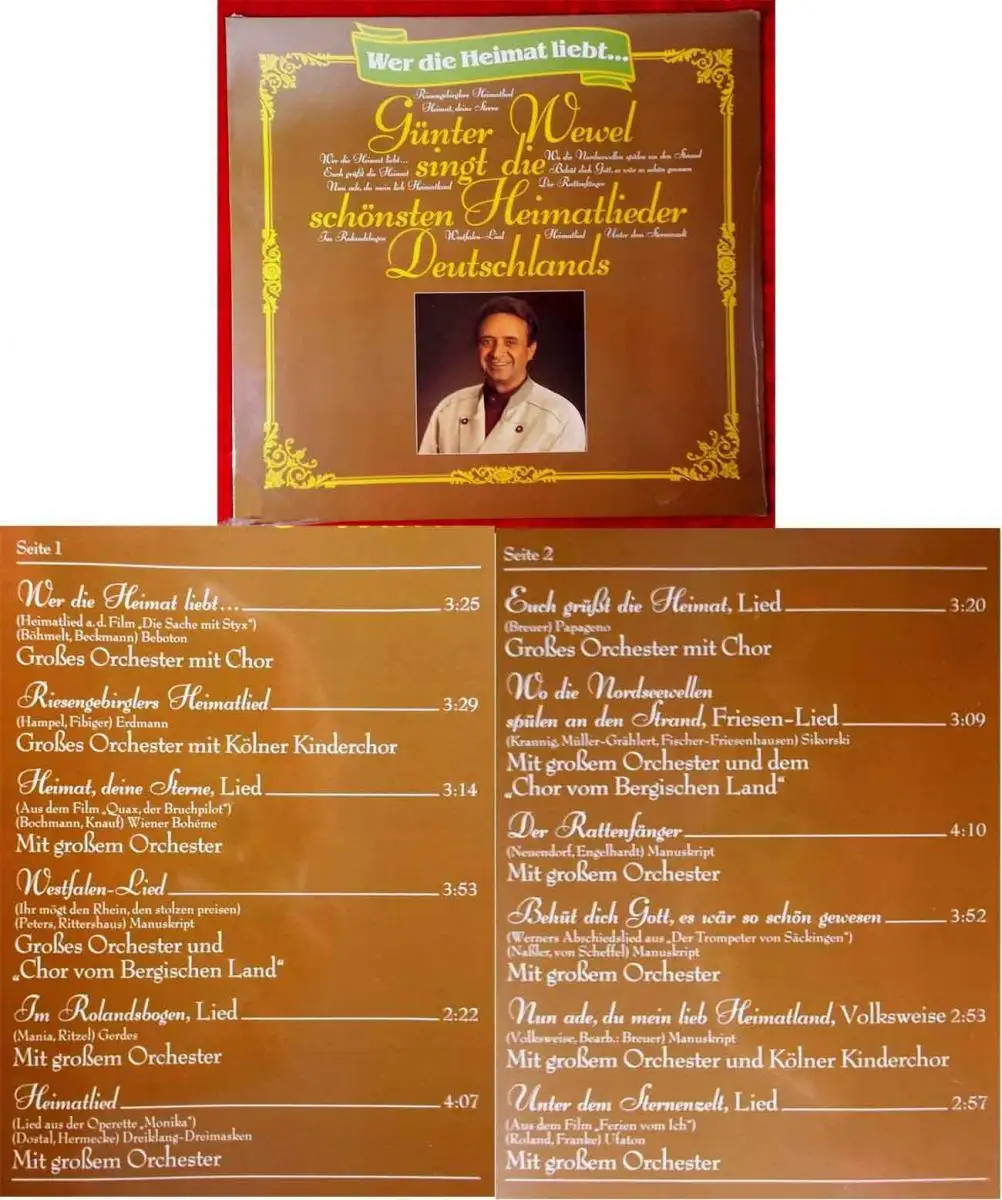 Wer die Heimat liebt...
Riesengebirglers Heimatlied
Heimat, deine Sterne
Günter Wewel
Wer die Heimat liebt...
Euch grüßt die Heimat
Nun ade, du mein lieb Heimatland
singt die
Wo die Nordseewellen spülen an den Strand
Behüt dich Gott, es wär so schön gewesen
Der Rattenfänger
schönsten Heimatlieder
Im Rolandsbogen Westfalen-Lied Heimatlied Unter dem Sternenzelt
Deutschlands
Seite 1
Wer die Heimat liebt... 3:25
(Heimatlied a.d. Film „Die Sache mit Styx“)
(Böhmelt, Beckmann) Beboton
Großes Orchester mit Chor
Riesengebirglers Heimatlied 3:29
(Hampel, Fibiger) Erdmann
Großes Orchester mit Kölner Kinderchor
Heimat, deine Sterne, Lied 3:14
(Aus dem Film „Quax, der Bruchpilot“)
(Bochmann, Knauf) Wiener Bohéme
Mit großem Orchester
Westfalen-Lied 3:53
(Ihr mögt den Rhein, den stolzen preisen)
(Peters, Rittershaus) Manuskript
Großes Orchester und
„Chor vom Bergischen Land“
Im Rolandsbogen, Lied 2:22
(Mania, Ritzel) Gerdes
Mit großem Orchester
Heimatlied 4:07
(Lied aus der Operette „Monika“)
(Dostal, Hermecke) Dreiklang-Dreimasken
Mit großem Orchester
Seite 2
Euch grüßt die Heimat, Lied 3:20
(Breuer) Papageno
Großes Orchester mit Chor
Wo die Nordseewellen
spülen an den Strand, Friesen-Lied 3:09
(Krannig, Müller-Grählert, Fischer-Friesenhausen) Sikorski
Mit großem Orchester und dem
„Chor vom Bergischen Land“
Der Rattenfänger 4:10
(Neuendorf, Engelhardt) Manuskript
Mit großem Orchester
Behüt dich Gott, es wär so schön gewesen 3:52
(Werners Abschiedslied aus „Der Trompeter von Säckingen“)
(Naßler, von Scheffel) Manuskript
Mit großem Orchester
Nun ade, du mein lieb Heimatland, Volksweise 2:53
(Volksweise, Bearb.: Breuer) Manuskript
Mit großem Orchester und Kölner Kinderchor
Unter dem Sternenzelt, Lied 2:57
(Aus dem Film „Ferien vom Ich“)
(Roland, Franke) Ufaton
Mit großem Orchester